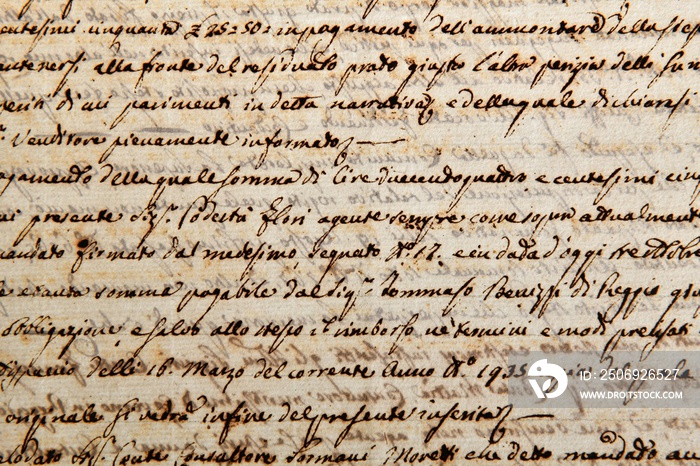 centesimi cinquanta £ 25=50= in pagamento dell'ammontare della step
antenersi alla fronte del residuato prato giusto l'altra perizia delli sun
menti di cui parimenti in detta narrativa, e della quale dichiarasi
Venditore pienamente informato
agamento della quale somma di lire duecendoquattro e centesimi cin
presente Sig.r Podestà Flori agente sempre come sopra attualment
mandato firmato dal medesimo, segnato N.o 12. e in data d'oggi tre
somma pagabile dal Sig.r Tommaso di Reggio
obbligazione, e salvo allo stesso il rimborso ne' termini e modi precisati
Dispaccio delli 16. Marzo del corrente Anno N.o 1935
originale si vedrà in fine del presente inserito
elodato Sig.r Conte Consultore Moretti che detto mandato
ID: 2506926527
WWW.DROITSTOCK.COM